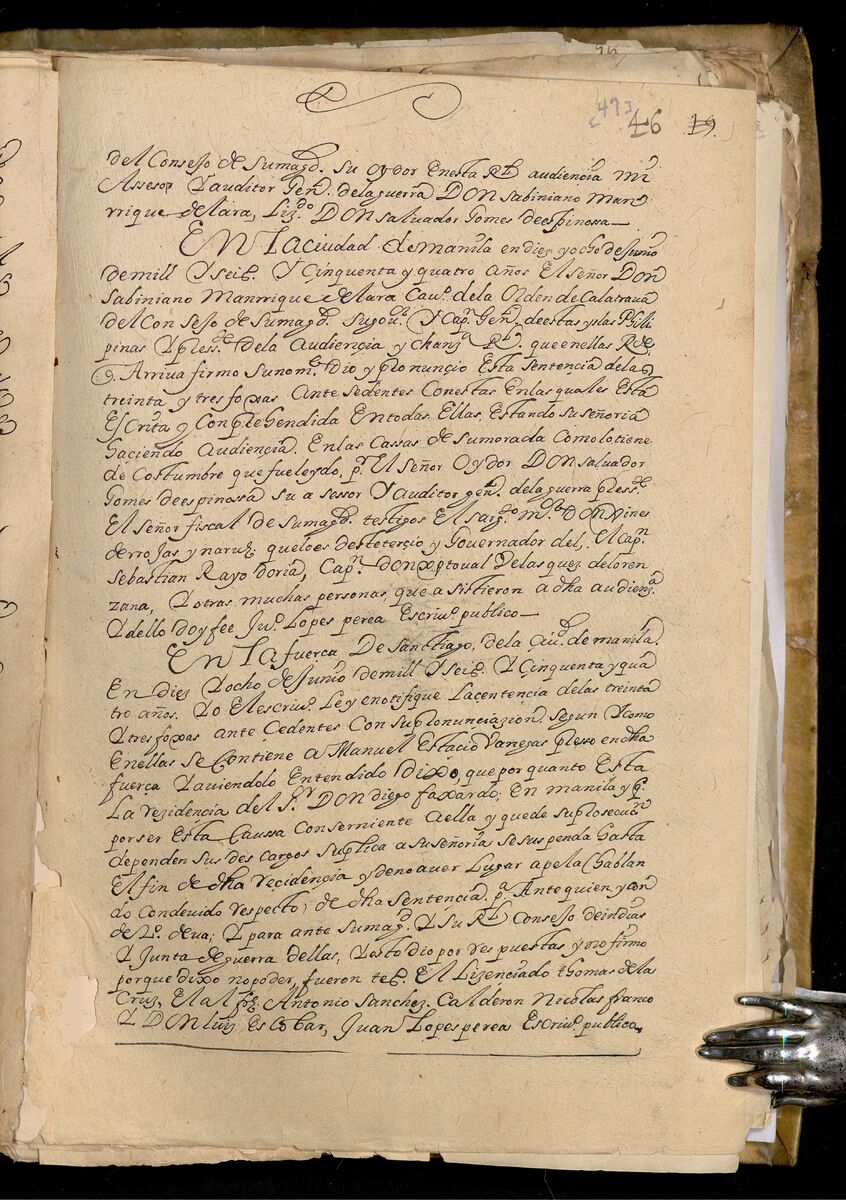 473
46 19.
del Consejo de su magd. su oydor en esta Rl audiencia mi
Assesor y auditor Genl. de la guerra DON Sabiniano Man
rrique de lara, Lizdo DON Salvador Gomes de espinossa
EN La ciudad de manila en diez y ocho de Junio
de mill y seis. y cinquenta y quatro años El señor Don
Sabiniano Manrrique de lara Cavo. de la Orden de Calatrava
del Consejo de su magd. su govr. y Capn Genl. de estas yslas Phili
pinas y presste de la Audiençia y chanzа Rl. que en ellas Rde
Arriva firmo su nome dio y pronunçio esta sentencia de las
treinta y tres foxas Ante sedentes Con estas en las quales Está
Escrita y Conprehendida en todas Ellas, estando su señoria
haciendo Audiencia. En las Cassas de su morada Como lo tiene
de Costumbre que fue leydo, pr El señor Oydor DON Salvador
Gomes de espinossa su a sessor y auditor genl. de la guerra pressте
El señor fiscal de su magd. testigos El sargto mr. DON
de rrojas y que lo es de este terçio y Governador del, El capn
Sebastian Rayo doria, Capn. don xptoual Velasquez de loren
zana, y otras muchas personas, que a sistieron a dha audienza
y dello doy fee Ju. Lopes perea Escrivo. publico
En La fuerça De Santhiago, de la Ciud. de manila
En diez y ocho de Junio de mill y seis. y Cinquenta y qua
tro años. yo El escrivo. Ley e notifique La centencia de las treinta
y tres foxas ante Çedentes Con su pronunciazion segun y como
en ellas se Contiene a Manuel Estacio Vanegas presso en dha
fuerça y aviendolo Entendido Dixo, que por quanto Esta
La rezidencia del Sr DON diego faxardo, En manila y
por ser Esta Caussa Conserniente a ella y quede su prosecuon
dependen sus des cargos Suplica a su señoria se suspenda hasta
El fin de dha reçidençia y de no aver Lugar apela hablan
do Con devido respecto, de dha Sentencia, pa Ante quien y con
de dro. deva, y para ante su magd. y su Rl Consejo de indias
y Junta de guerra dellas, y esto dio por respuestas y no firmo
porque dixo no poder, fueron tes. El Lizenciado thomas de la
Cruz, El alfrz. Antonio Sanchez. Calderon Nicolas franco
y DON Luiz Escobar, Juan Lopes perea Escrivo publico